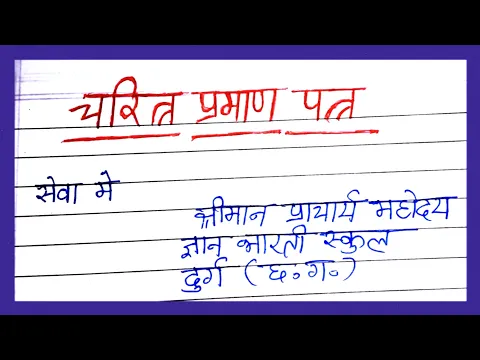 चरित्र प्रमाण पत्र
सेवा मे
श्रीमान प्राचार्य महोदय
ज्ञान भारती स्कुल
दुर्ग (छ॰ग॰)